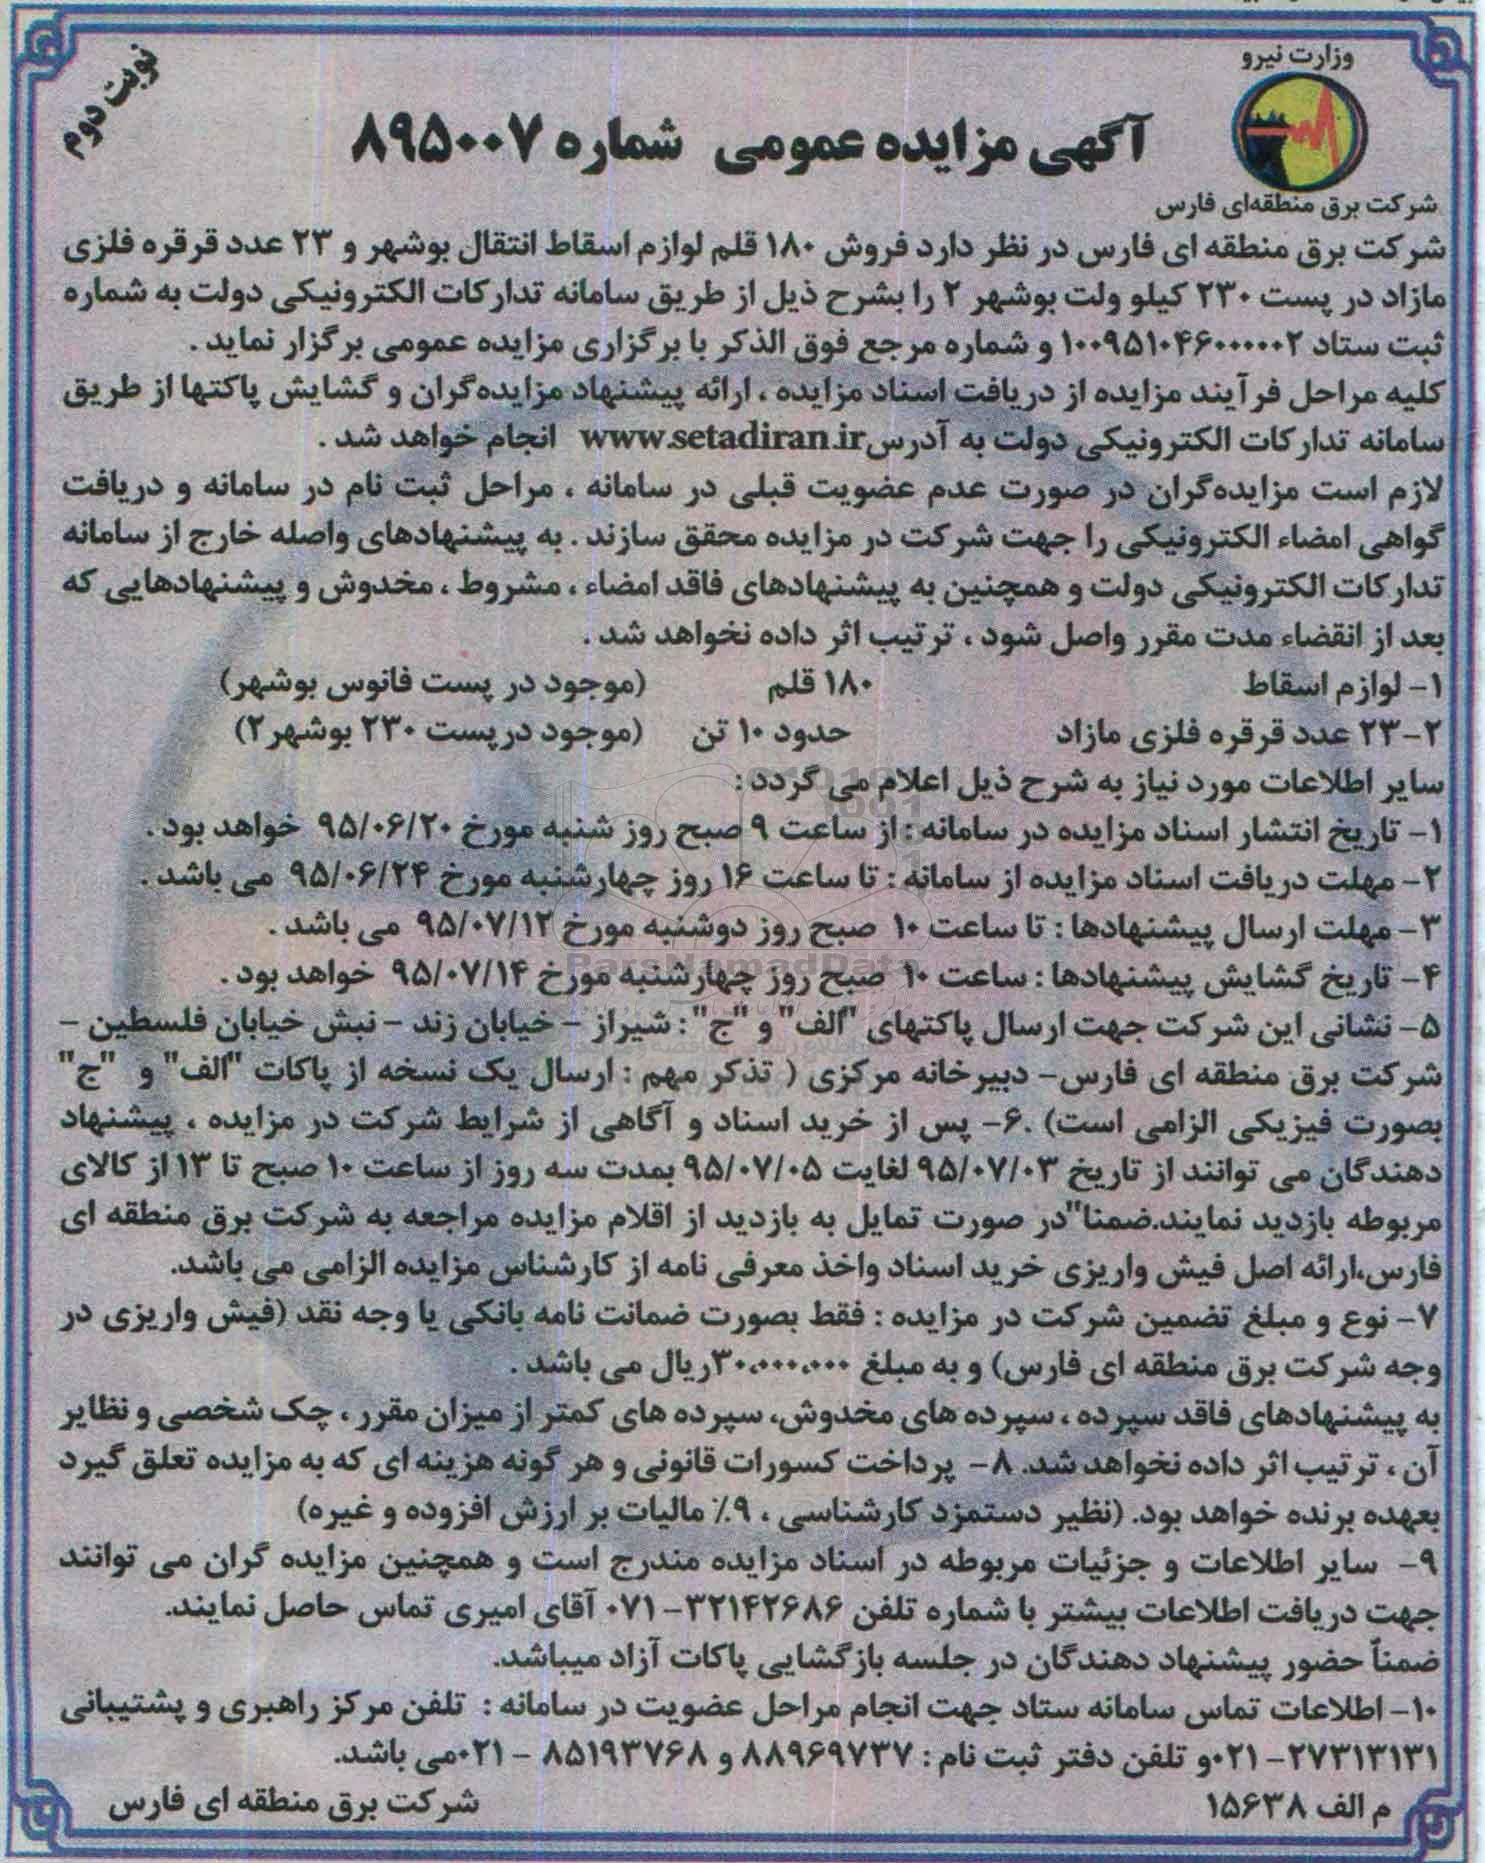 نوبت دوم
وزارت نیرو
شرکت برق منطقه‌ای فارس
آگهی مزایده عمومی شماره ۸۹۵۰۰۷
شرکت برق منطقه ای فارس در نظر دارد فروش ۱۸۰ قلم لوازم اسقاط انتقال بوشهر و ۲۳ عدد قرقره فلزی
مازاد در پست ۲۳۰ کیلو ولت بوشهر ۲ را بشرح ذیل از طریق سامانه تدارکات الکترونیکی دولت به شماره
ثبت ستاد ۱۰۰۹۵۱۰۴۶۰۰۰۰۰۲ و شماره مرجع فوق الذکر با برگزاری مزایده عمومی برگزار نماید .
کلیه مراحل فرآیند مزایده از دریافت اسناد مزایده ، ارائه پیشنهاد مزایده‌گران و گشایش پاکتها از طریق
سامانه تدارکات الکترونیکی دولت به آدرس www.setadiran.ir انجام خواهد شد .
لازم است مزایده‌گران در صورت عدم عضویت قبلی در سامانه ، مراحل ثبت نام در سامانه و دریافت
گواهی امضاء الکترونیکی را جهت شرکت در مزایده محقق سازند . به پیشنهادهای واصله خارج از سامانه
تدارکات الکترونیکی دولت و همچنین به پیشنهادهای فاقد امضاء ، مشروط ، مخدوش و پیشنهادهایی که
بعد از انقضاء مدت مقرر واصل شود ، ترتیب اثر داده نخواهد شد .
۱- لوازم اسقاط ۱۸۰ قلم (موجود در پست فانوس بوشهر)
۲-۲۳ عدد قرقره فلزی مازاد حدود ۱۰ تن (موجود درپست ۲۳۰ بوشهر۲)
سایر اطلاعات مورد نیاز به شرح ذیل اعلام می گردد :
۱- تاریخ انتشار اسناد مزایده در سامانه : از ساعت ۹ صبح روز شنبه مورخ ۹۵/۰۶/۲۰ خواهد بود .
۲- مهلت دریافت اسناد مزایده از سامانه : تا ساعت ۱۶ روز چهارشنبه مورخ ۹۵/۰۶/۲۴ می باشد .
۳- مهلت ارسال پیشنهادها : تا ساعت ۱۰ صبح روز دوشنبه مورخ ۹۵/۰۷/۱۲ می باشد .
ParsNamadData
۴- تاریخ گشایش پیشنهادها : ساعت ۱۰ صبح روز چهارشنبه مورخ ۹۵/۰۷/۱۴ خواهد بود .
۵- نشانی این شرکت جهت ارسال پاکتهای "الف" و "ج" : شیراز - خیابان زند - نبش خیابان فلسطین -
شرکت برق منطقه ای فارس- دبیرخانه مرکزی ( تذکر مهم : ارسال یک نسخه از پاکات "الف" و "ج"
بصورت فیزیکی الزامی است) .۶- پس از خرید اسناد و آگاهی از شرایط شرکت در مزایده ، پیشنهاد
دهندگان می توانند از تاریخ ۹۵/۰۷/۰۳ لغایت ۹۵/۰۷/۰۵ بمدت سه روز از ساعت ۱۰ صبح تا ۱۳ از کالای
مربوطه بازدید نمایند.ضمنا"در صورت تمایل به بازدید از اقلام مزایده مراجعه به شرکت برق منطقه ای
فارس،ارائه اصل فیش واریزی خرید اسناد واخذ معرفی نامه از کارشناس مزایده الزامی می باشد.
۷- نوع و مبلغ تضمین شرکت در مزایده : فقط بصورت ضمانت نامه بانکی یا وجه نقد (فیش واریزی در
وجه شرکت برق منطقه ای فارس) و به مبلغ ۳۰،۰۰۰،۰۰۰ریال می باشد .
به پیشنهادهای فاقد سپرده ، سپرده های مخدوش، سپرده های کمتر از میزان مقرر ، چک شخصی و نظایر
آن ، ترتیب اثر داده نخواهد شد. ۸- پرداخت کسورات قانونی و هر گونه هزینه ای که به مزایده تعلق گیرد
بعهده برنده خواهد بود. (نظیر دستمزد کارشناسی ، ۹٪ مالیات بر ارزش افزوده و غیره)
۹- سایر اطلاعات و جزئیات مربوطه در اسناد مزایده مندرج است و همچنین مزایده گران می توانند
جهت دریافت اطلاعات بیشتر با شماره تلفن ۳۲۱۴۲۶۸۶-۰۷۱ آقای امیری تماس حاصل نمایند.
ضمناً حضور پیشنهاد دهندگان در جلسه بازگشایی پاکات آزاد میباشد.
۱۰- اطلاعات تماس سامانه ستاد جهت انجام مراحل عضویت در سامانه : تلفن مرکز راهبری و پشتیبانی
۲۷۳۱۳۱۳۱-۰۲۱و تلفن دفتر ثبت نام : ۸۸۹۶۹۷۳۷ و ۸۵۱۹۳۷۶۸ - ۰۲۱می باشد.
م الف ۱۵۶۳۸ شرکت برق منطقه ای فارس